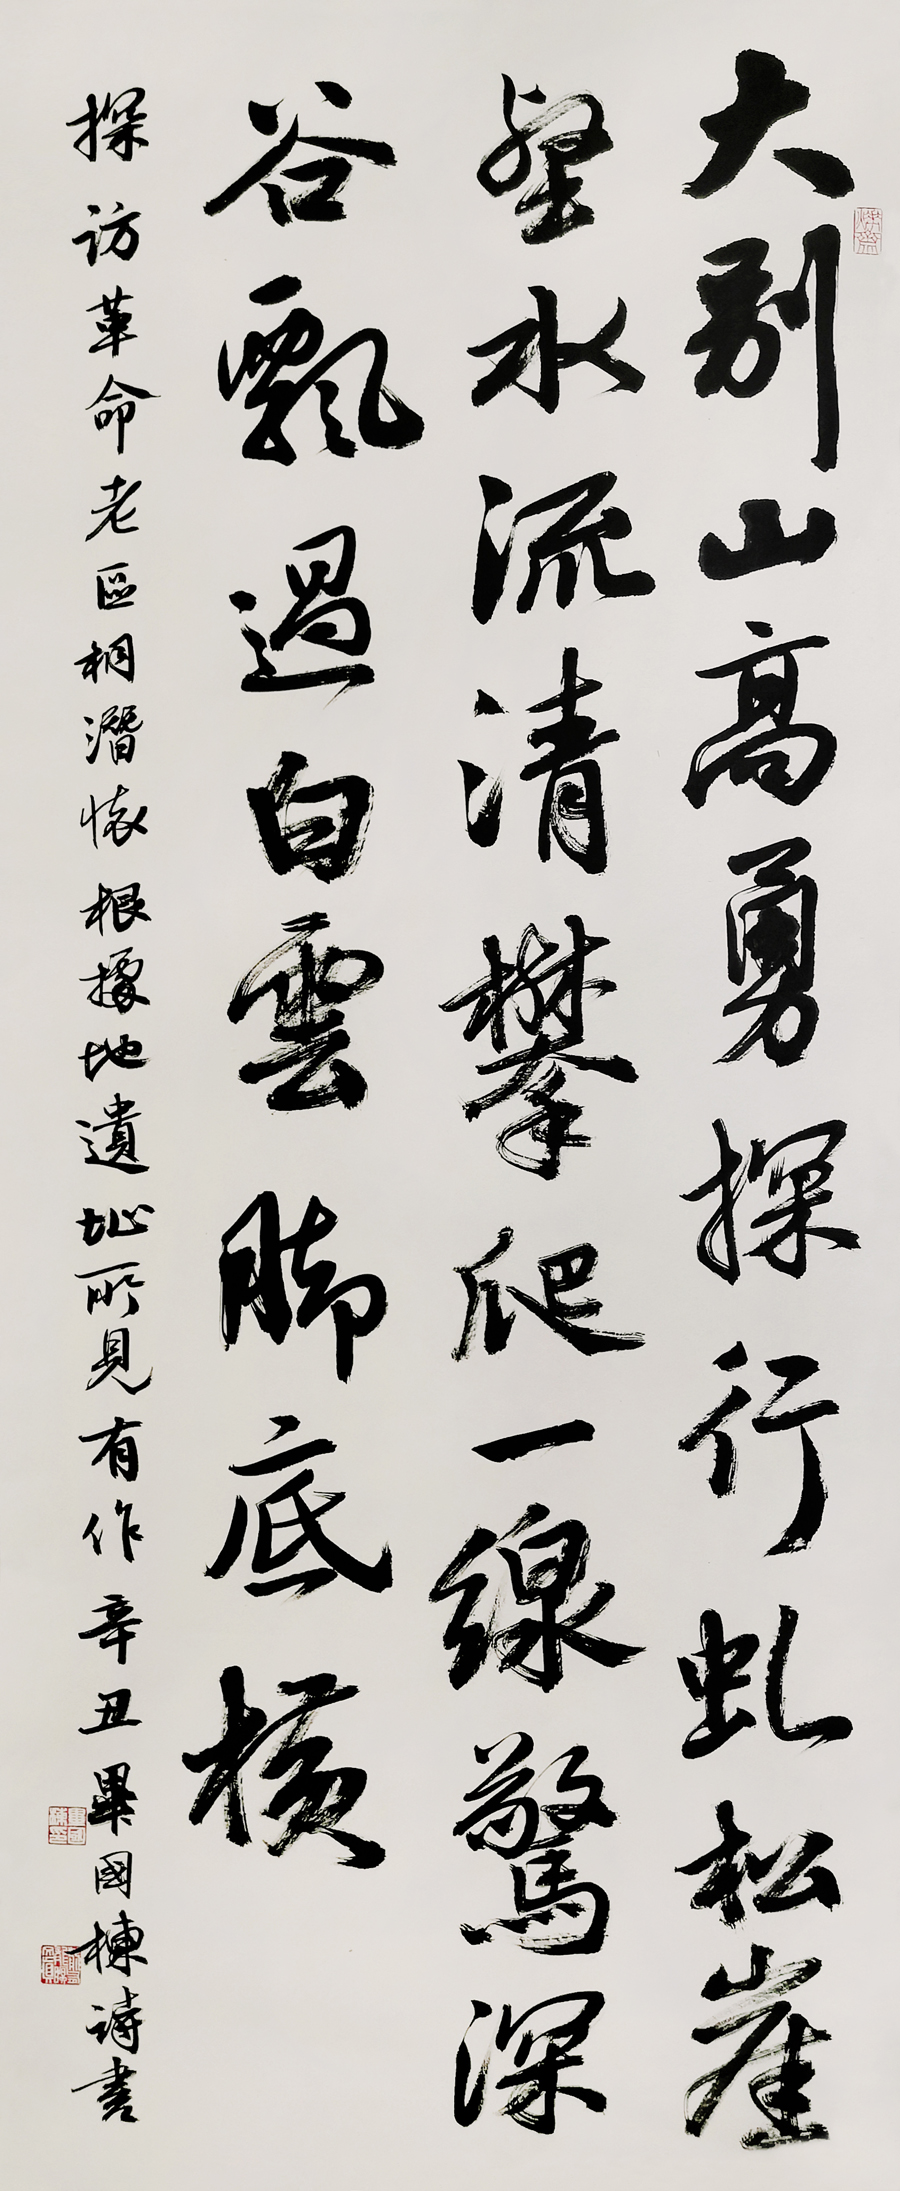 大别山高勇探行虬松崖
壑水流清攀爬一線驚深
谷飄過白雲脚底横
探訪革命老區桐潛懷根據地遺址所見有作辛丑畢國棟詩書